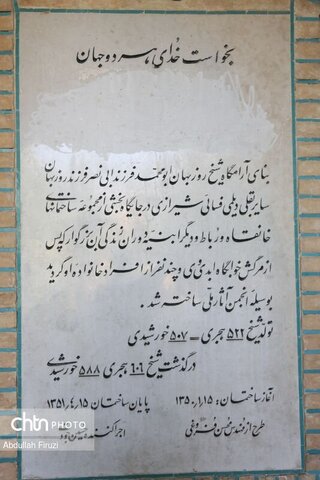 بخواست خدای هر دو جهان
بنای آرامگاه شیخ روزبهان ابومحمد فرزند ابی نصر فرزند روزبهان
بقلی دیلمی فسائی شیرازی در جایگاه بخشی از مجموعه ساختمانهای
خانقاه و رباط و دیگر ابنیه دوران زندگی آن بزرگوار که پس
از مرگش خوابگاه ابدی وی و چند نفر از افراد خانواده او گردید
بوسیله انجمن آثار ملی ساخته شد.
تولد شیخ ۵۲۲ هجری = ۵۰۷ خورشیدی
درگذشت شیخ ۶۰۶ هجری ۵۸۸ خورشیدی
آغاز ساختمان: ۱۳۵۰،۱،۱۵ پایان ساختمان ۱۳۵۱،۴،۱۵
طرح از مهندس محسن فروغی اجرا کننده
chtn PHOTO
Abdullah Firuzi